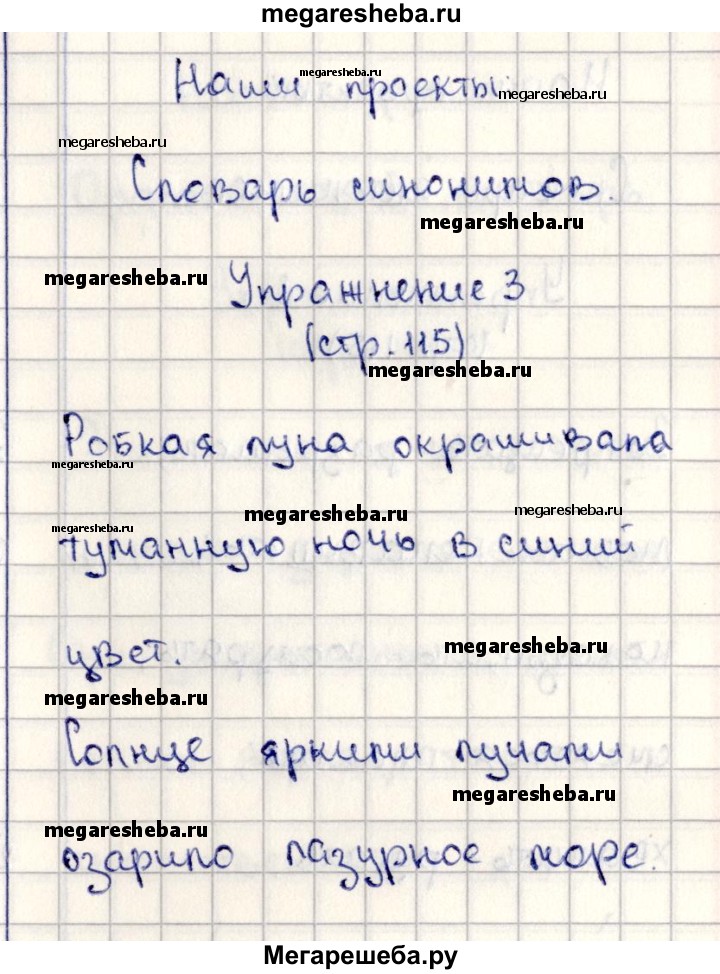 megaresheba.ru
Наши проекты
megaresheba.ru
megaresheba.ru
megaresheba.ru
Словарь синонимов.
megaresheba.ru
megaresheba.ru
Упражнение 3
(стр. 115)
megaresheba.ru
Робкая луна окрашивала
megaresheba.ru
megaresheba.ru
megaresheba.ru
megaresheba.ru
туманную ночь в синий
цвет.
megaresheba.ru
megaresheba.ru
Солнце яркими лучами
megaresheba.ru
megaresheba.ru
озарило лазурное море.
Мегарешеба.ру